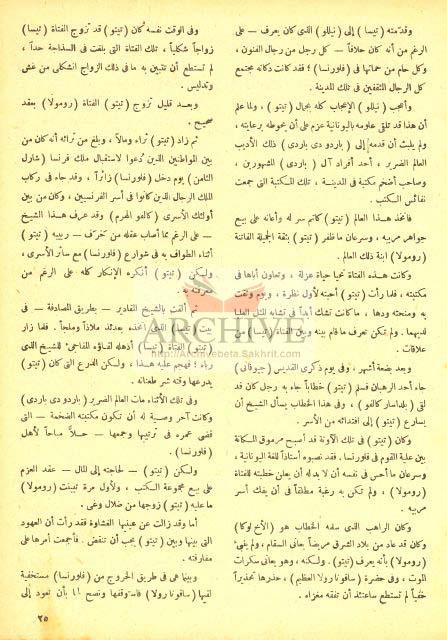 وقدمته ( تيسا ) إلى ( نيللو ) الذى كان يعرف — على
الرغم من أنه كان حلاقاً — كل رجل من رجال الفنون ،
وكل حام من حماتها فى ( فلورنسا ) ؛ فقد كانت دكانه مجتمع
كل الرجال المثقفين فى تلك المدينة .
وأعجب ( نيللو ) الإعجاب كله بجمال ( تيتو ) ، ولما علم
أن هذا قد تلقى علومه باليونانية عزم على أن يحوطه برعايته ،
ولم يلبث أن قدمه إلى ( باردو دى باردى ) ذلك الأديب
العالم الضرير ، أحد أفراد آل ( باردى ) الشهورين ،
وصاحب أضخم مكتبة فى المدينة . تلك المكتبة التى جمعت
نفائس الكتب
فاتخذ هذا العالم ( تيتو ) كاتم سر له وأعانه على بيع
جواهر مربيه . وسرعان ما ظفر ( تيتو ) بثقة الجميلة الفاتنة
( رومولا ) ابنة ذلك العالم .
وكانت هذه الفتاة تحيا حياة عزلة ، وتعاون أباها فى
مكتبته ، فلما رأت ( تيتو ) أحبته لأول نظرة ، ويوم وثقت
به ومنحته ودها ، ما كانت تشك أبداً فى تشابه المثل العليا
لديهما . ولم تكن تعرف ما قام بينه وبين الفتاة ( تيسا ) من
علاقات .
وبعد بضعة أشهر ، وفى يوم ذكرى القديس ( جيوفانى )
جاء أحد الرهبان فسلم ( تيتو ) خطاباً جاء به رجل كان قد
لقى ( بلداسار كالفو ) ، وفى هذا الخطاب يسأل الشيخ أن
يسارع ( تيتو ) إلى افتدائه من الأسر .
وكان ( تيتو ) فى تلك الآونة قد أصبح مرموق المكانة
بين علية القوم فى فلورنسا . فقد نصبوه أستاذاً للغة اليونانية ،
وسرعان ما أحس فى نفسه أن لا بد له أن يعلن خطبته للفتاة
( رومولا ) ، ولم تكن به رغبة مطلقاً فى أن يفك أسر
مربيه .
وكان الراهب الذى سلمه الخطاب هو ( الأخ لوكا )
وكان قد عاد من بلاد الشرق مريضاً يعانى السقام ، ولم يفى
( رومولا ) بأنه يعرف ( تيتو ) . ولكنه ، وهو يعانى سكرات
الموت ، وفى حضرة ( سافونا رولا العظيم ) ، حذرها تحذيراً
خفياً لم تستطع ساعتئذ أن تفقه مغزاه .
وفى الوقت نفسه كان ( تيتو ) قد تزوج الفتاة ( تيسا )
زواجاً شكلياً ، تلك الفتاة التى بلغت فى السذاجة حداً ،
لم تستطع أن تتبين به ما فى ذلك الزواج الشكلى من غش
وتدليس .
وبعد قليل تزوج ( تيتو ) الفتاة ( رومولا ) بعقد
صحيح .
ثم زاد ( تيتو ) ثراء ومالاً ، وبلغ من ثرائه أنه كان من
بين المواطنين الذين دُعوا لاستقبال ملك فرنسا ( شارل
الثامن ) يوم دخل ( فلورنسا ) زائراً ، وقد جاء فى ركاب
الملك الرجال الذين كانوا فى أسر الفرنسيين ، وكان من بين
أولئك الأسرى ( كالفو الهرم ) وقد عرف هذا الشيخ
— على الرغم مما أصاب عقله من خرف — ربيبه ( تيتو )
أثناء الطواف به فى شوارع ( فلورنسا ) مع سائر الأسرى ،
ولكن ( تيتو ) أنكره الإنكار كله على الرغم من
معرفته به .
ثم ألفت بالشيخ المقادير — بطريق المصادفة — فى
بيت ( تيسا ) الذى اتخذه بعدئذ ملاذاً وملجأ . فلما زار
( تيتو ) الفتاة ( تيسا ) أذهله لقاؤه المفاجئ للشيخ الذى
رباه ؛ فهجم عليه هذا ، ولكن الدرع التى كان ( تيتو )
يدرعها وقته شر طعناته .
وفى تلك الأثناء مات العالم الضرير ( باردو دى باردى )
وكانت آخر وصية له أن تكون مكتبته الضخمة — التى
قضى عمره فى ترتيبها وجمعها — حلاً مباحاً لأهل
( فلورنسا ) .
ولكن ( تيتو ) — لحاجته إلى المال — عقد العزم
على بيع مجموعة الكتب ، ولأول مرة تبينت ( رومولا )
ما عليه ( تيتو ) زوجها من ضلال وغى .
أما وقد زالت عن عينيها الغشاوة فقد رأت أن العهود
التى بينها وبين ( تيتو ) يجب أن تنقض . فأجمعت أمرها على
مفارقته .
وبينما هى فى طريق الخروج من ( فلورنسا ) مستخفية
لقيها ( سافونا رولا ) فاستوقفها ونصح لها بأن تعود إلى
٢٥
ARCHIVE
http://Archivebeta.Sakhrit.com